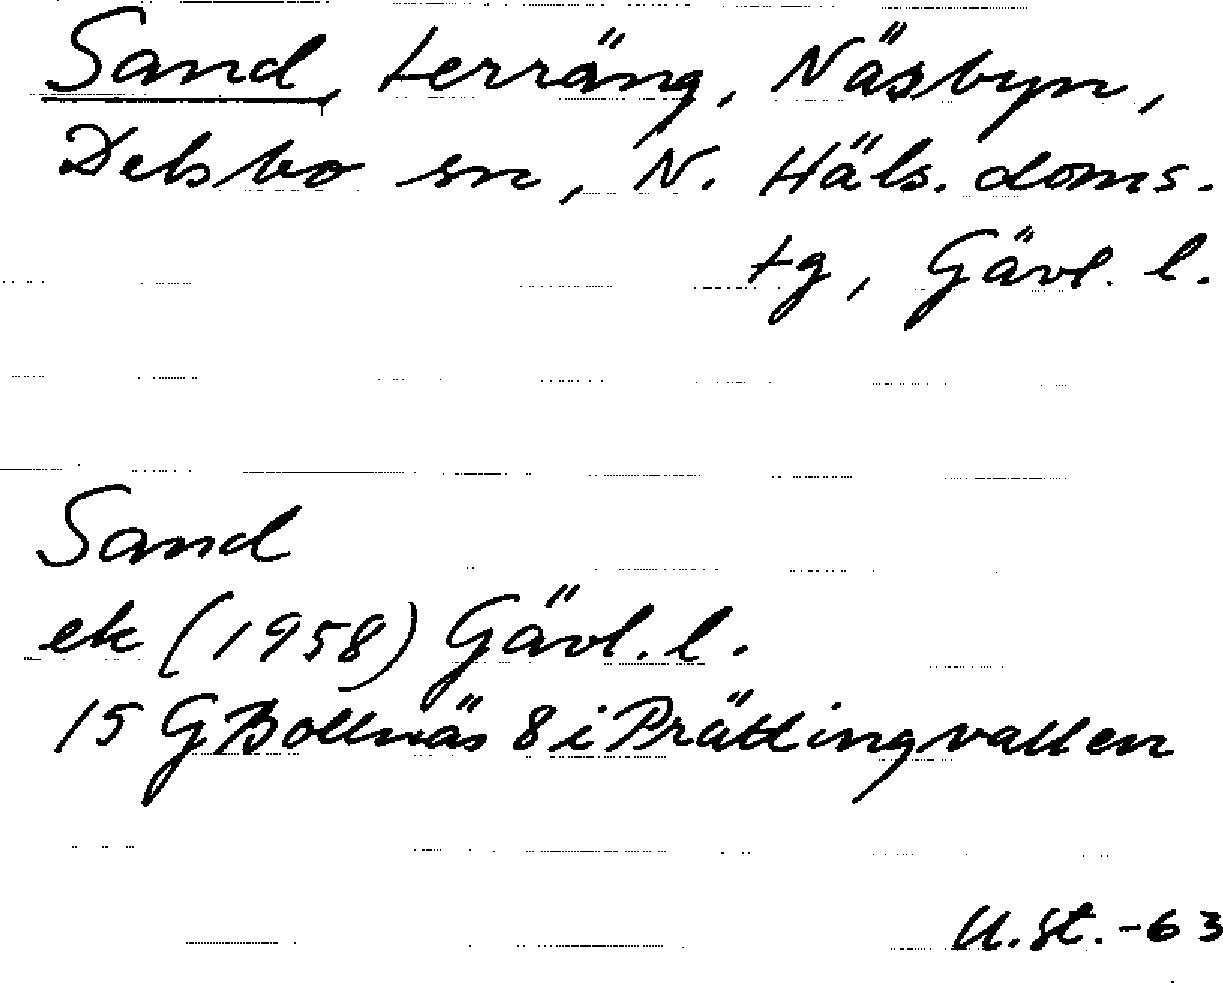 Sand, terräng, Näsbyn,
Delsbo sn, N. Häls. doms.
tg, Gävl. l.
Sand
ek (1958) Gävl. l.
15 G Bollnäs 8 i Prästingvallen
U.St.-63